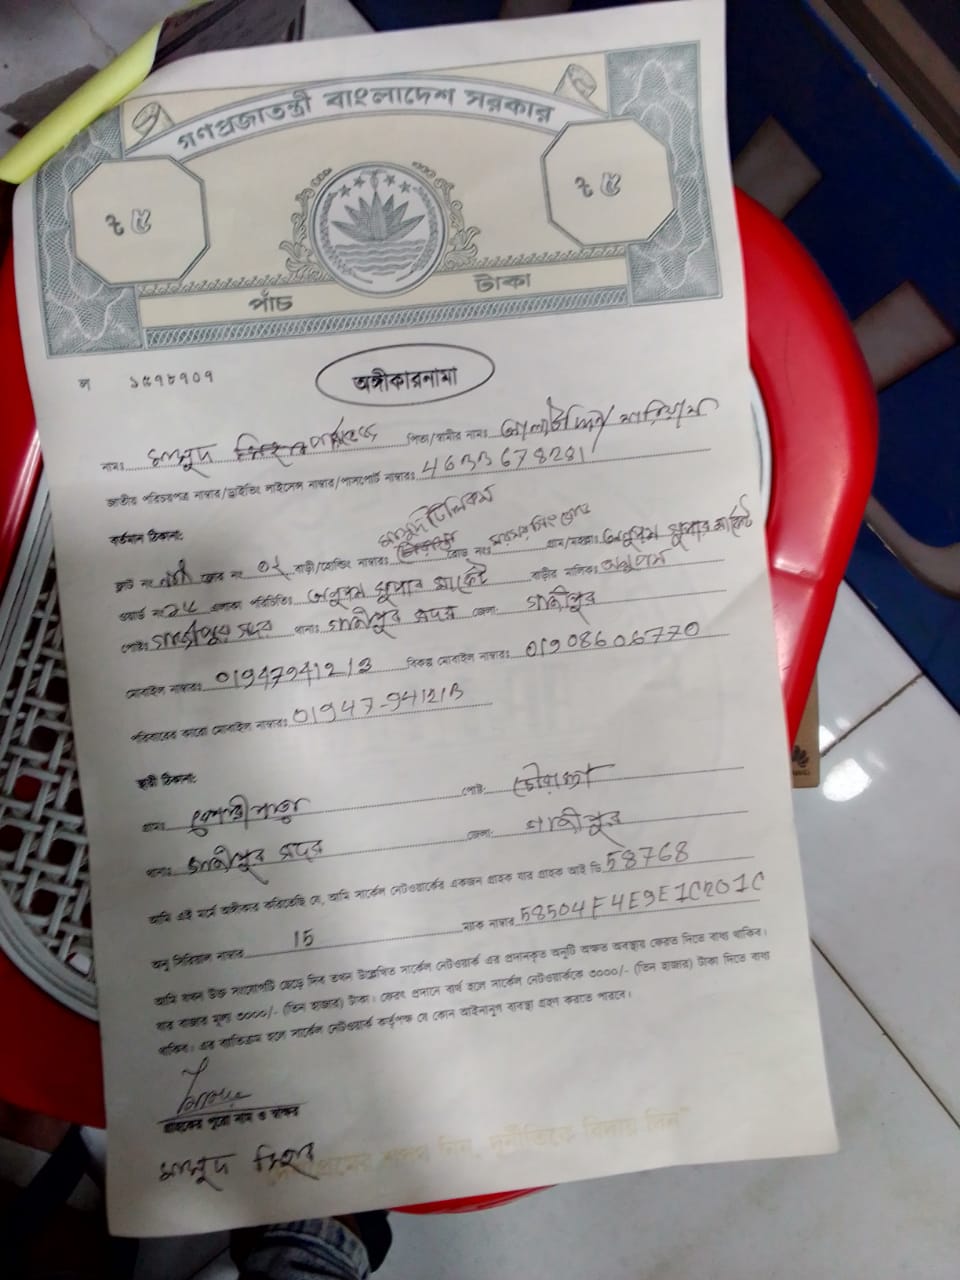 গণপ্রজাতন্ত্রী বাংলাদেশ সরকার
৳ ৫ ৳ ৫
পাঁচ টাকা
ল ১৫৭৮৭০৭
অঙ্গীকারনামা
নামঃ মাসুদ পিতা/স্বামীর নামঃ
জাতীয় পরিচয়পত্র নাম্বার/ড্রাইভিং লাইসেন্স নাম্বার/পাসপোর্ট নাম্বারঃ
বর্তমান ঠিকানা:
মাসুদ টেলিকম
ফ্ল্যাট নং ফ্লোর নং ০২ বাড়ী/হোল্ডিং নাম্বারঃ রোড নং গ্রাম/মহল্লাঃ অনুপম সুপার মার্কেট
ওয়ার্ড নং এলাকা পরিচিতিঃ অনুপম সুপার মার্কেট বাড়ীর মালিকঃ অনুপম
পোষ্টঃ গাজীপুর সদর থানাঃ গাজীপুর সদর জেলা: গাজীপুর
মোবাইল নাম্বারঃ 01947941213 বিকল্প মোবাইল নাম্বারঃ 01908606770
পরিবারের কারো মোবাইল নাম্বারঃ 01947-941213
স্থায়ী ঠিকানা:
গ্রামঃ পোষ্ট:
থানাঃ গাজীপুর সদর জেলা: গাজীপুর
আমি এই মর্মে অঙ্গীকার করিতেছি যে, আমি সার্কেল নেটওয়ার্কের একজন গ্রাহক যার গ্রাহক আই ডি 58768
অনু সিরিয়াল নাম্বার 15 ম্যাক নাম্বার 58504F4E9E1C201C
আমি যখন উক্ত সংযোগটি ছেড়ে দিব তখন উল্লেখিত সার্কেল নেটওয়ার্ক এর প্রদানকৃত অনুটি অক্ষত অবস্থায় ফেরত দিতে বাধ্য থাকিব।
যার বাজার মূল্য ৩০০০/- (তিন হাজার) টাকা। ফেরৎ প্রদানে ব্যর্থ হলে সার্কেল নেটওয়ার্ককে ৩০০০/- (তিন হাজার) টাকা দিতে বাধ্য
থাকিব। এর ব্যতিক্রম হলে সার্কেল নেটওয়ার্ক কর্তৃপক্ষ যে কোন আইনানুগ ব্যবস্থা গ্রহণ করতে পারবে।
গ্রাহকের পুরো নাম ও স্বাক্ষর
মাসুদ
দিন, দুর্নীতিকে বিদায় দিন"